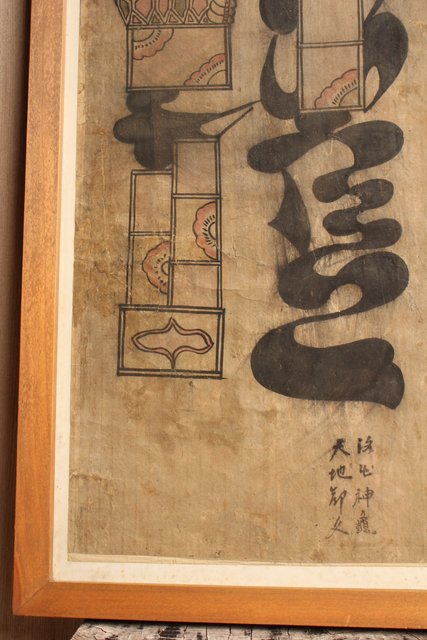 洛出神龜
天地節文